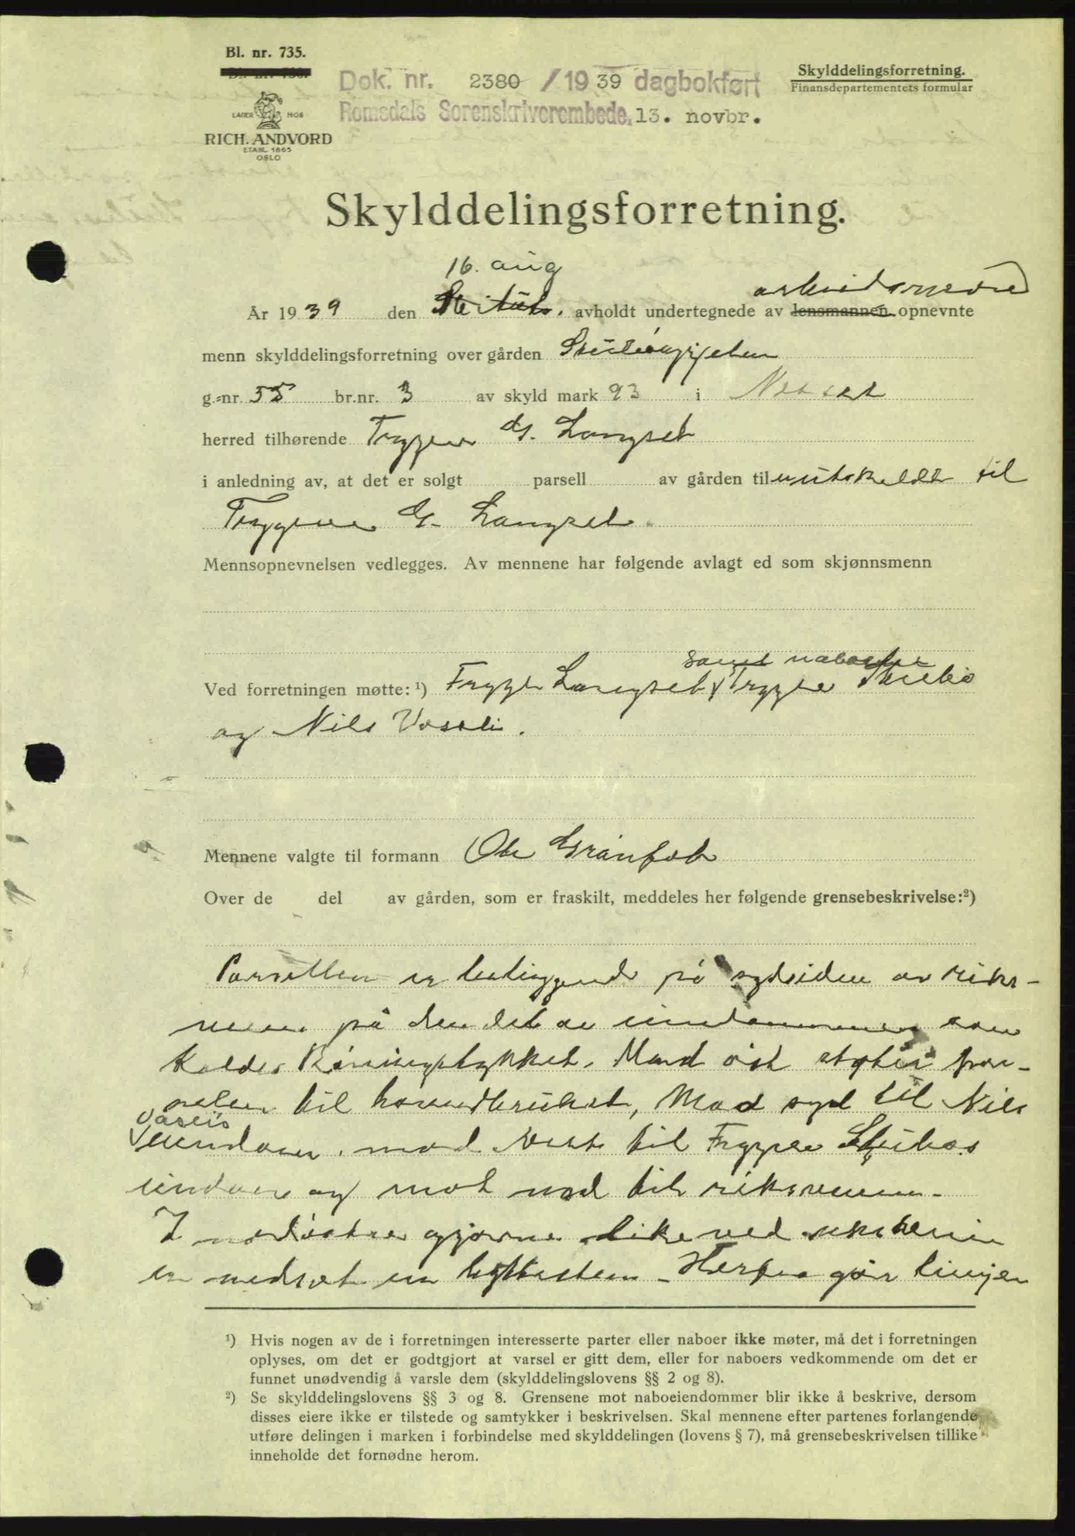 Bl. nr. 735.
Dok. nr. 2380 / 1939 dagbokført
Romsdals Sorenskriverembede, 13. novbr.
Skylddelingsforretning.
Finansdepartementets formular
LAGER HOS
RICH. ANDVORD
ETABL. 1865
OSLO
Skylddelingsforretning.
16. aug arbeidsnevnd
År 1939 den avholdt undertegnede av lensmannen opnevnte
menn skylddelingsforretning over gården
g.-nr. 55 br.nr. 3 av skyld mark 93 i Nesset
herred tilhørende Trygve G. Langset
i anledning av, at det er solgt parsell av gården til utskeldt til
Trygve G. Langset.
Mennsopnevnelsen vedlegges. Av mennene har følgende avlagt ed som skjønnsmenn
samt naboerne
Ved forretningen møtte: ¹) Trygve Langset, Trygve Stubø
og Nils Vasli.
Mennene valgte til formann Ole Grånfot
Over de del av gården, som er fraskilt, meddeles her følgende grensebeskrivelse:²)
Parsellen er beliggende på sydsiden av riks-
veien på den del av eiendommen som
kaldes . Mod øst støter par-
selen til hovedbruket, Mod syd til Nils
Vaslis
eiendom, mod Vest til Trygve Stubøs
eiendom og mot nord til riksveien.
I nordøstre hjørne like ved riksveien
er nedsat en byttesten. Herfra går linjen
¹) Hvis nogen av de i forretningen interesserte parter eller naboer ikke møter, må det i forretningen
oplyses, om det er godtgjort at varsel er gitt dem, eller for naboers vedkommende om det er
funnet unødvendig å varsle dem (skylddelingslovens §§ 2 og 8).
²) Se skylddelingslovens §§ 3 og 8. Grensene mot naboeiendommer blir ikke å beskrive, dersom
disses eiere ikke er tilstede og samtykker i beskrivelsen. Skal mennene efter partenes forlangende
utføre delingen i marken i forbindelse med skylddelingen (lovens § 7), må grensebeskrivelsen tillike
inneholde det fornødne herom.